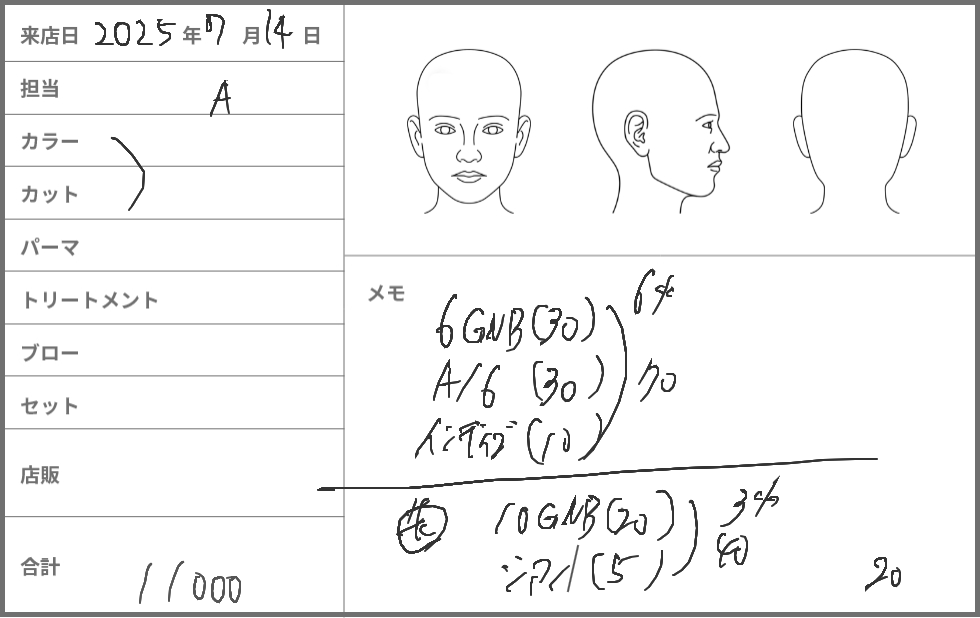 来店日 2025年7月14日
担当 A
カラー
カット
パーマ
トリートメント
ブロー
セット
店販
合計 11000
メモ
6GNB(30) 6%
A/6 (30) 70
インディゴ(10)
10GNB(20) 3%
(5) 40
20